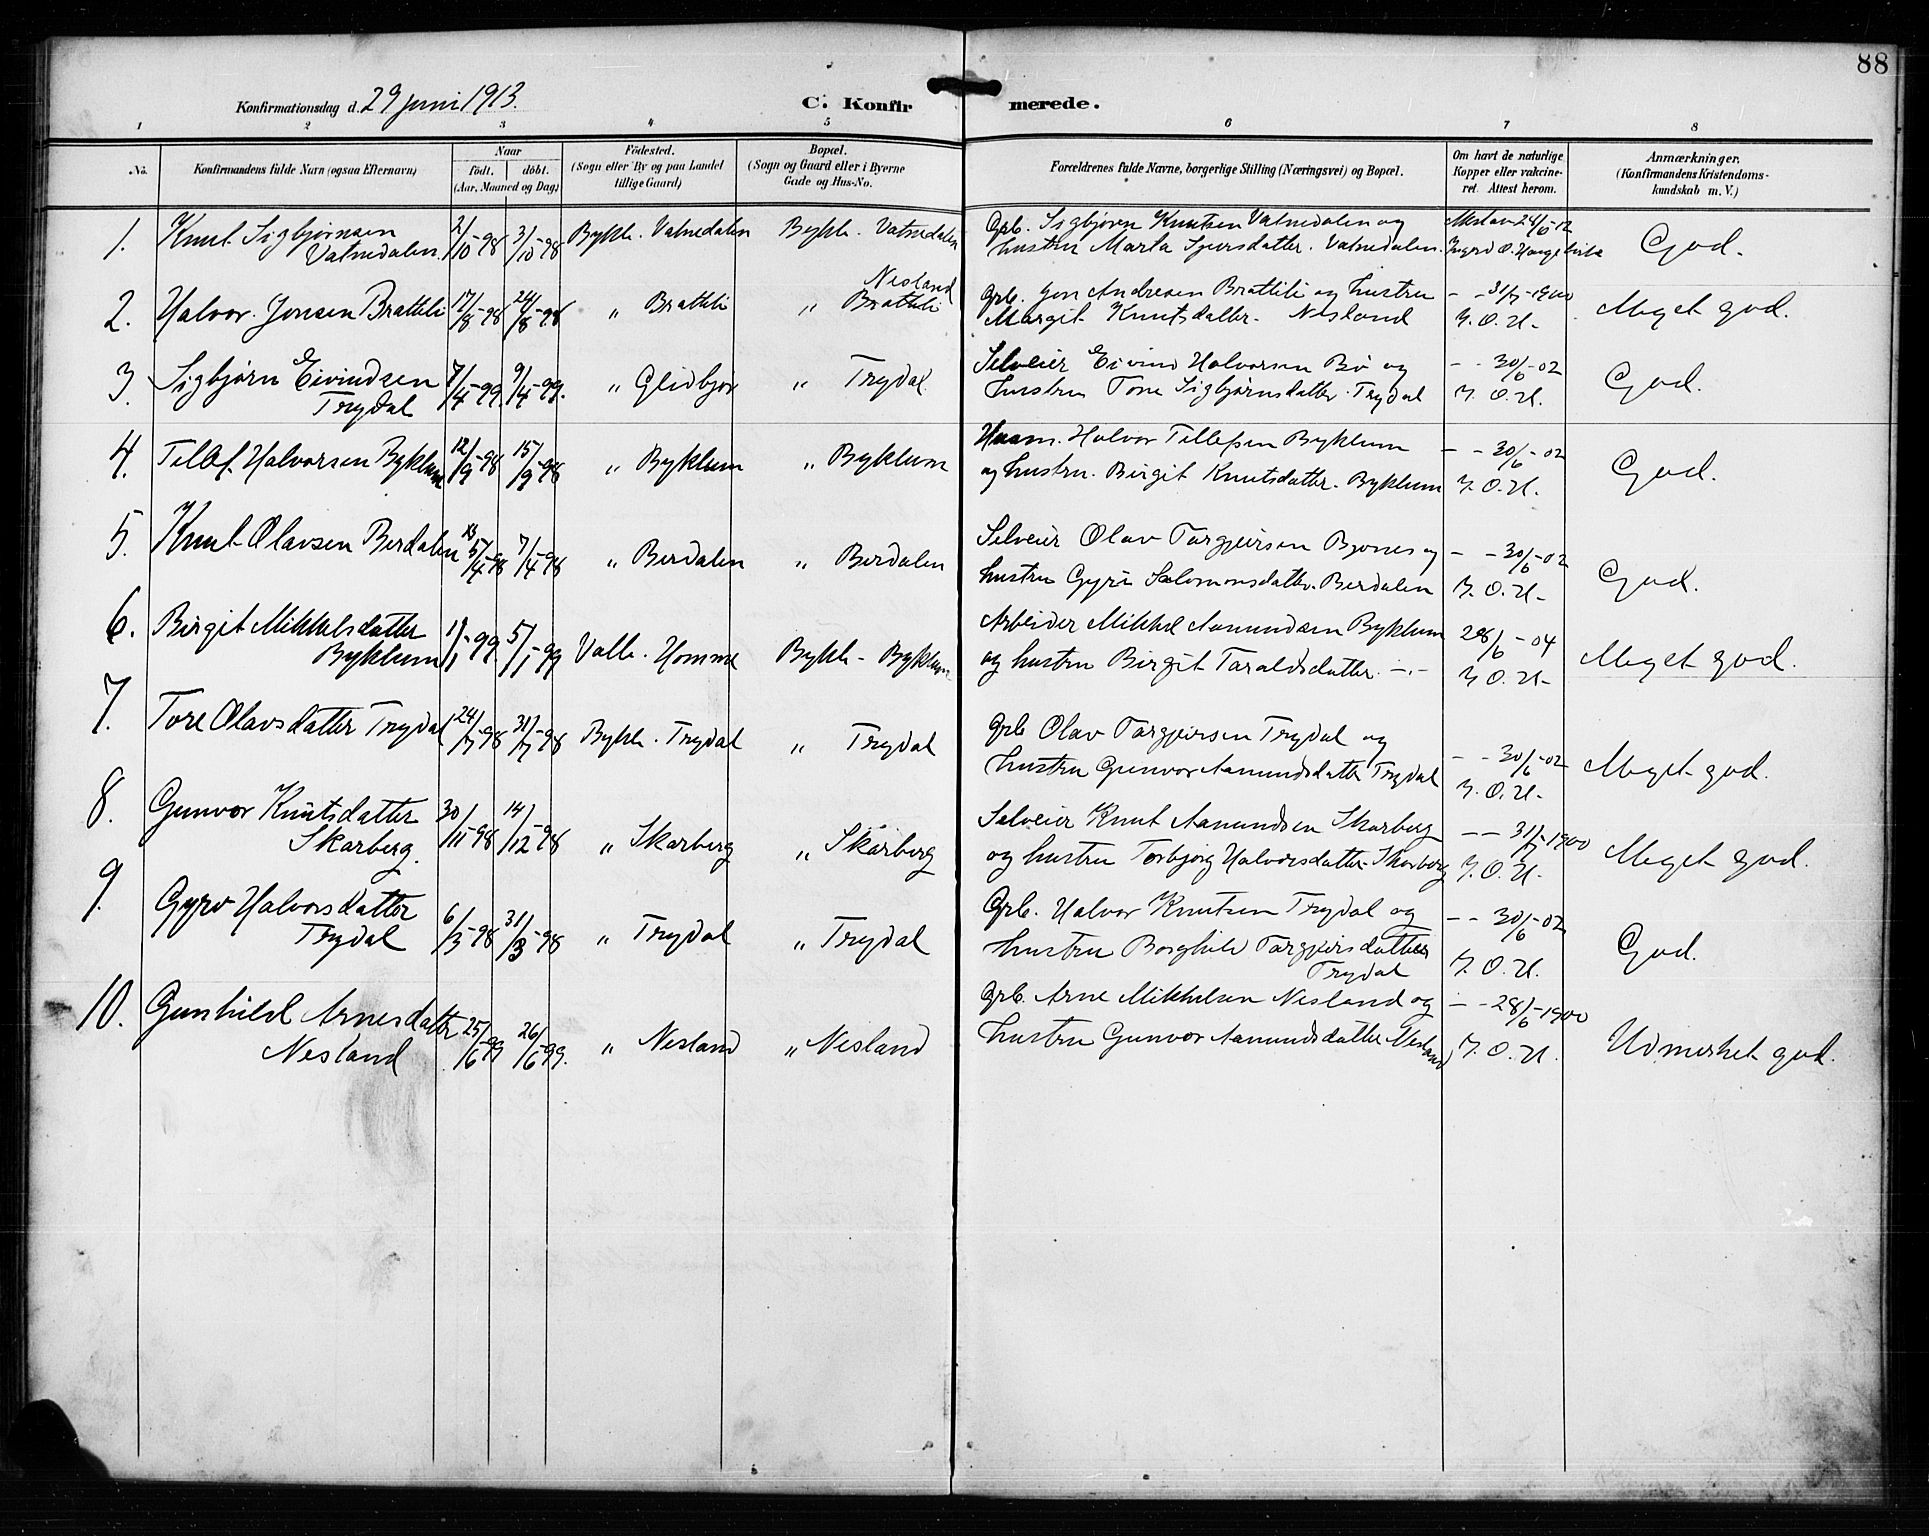 88
Konfirmationsdag d. 29 juni 1913.
C. Konfirmerede.
1 2 3 4 5 6 7 8
No.
Konfirmandens fulde Navn (ogsaa Efternavn)
Naar
født. døbt.
(Aar, Maaned og Dag)
Födested.
(Sogn eller By og paa Landet
tillige Gaard)
Bopæl.
(Sogn og Gaard eller i Byerne
Gade og Hus-No.
Forældrenes fulde Navne, borgerlige Stilling (Næringsvei) og Bopæl.
Om havt de naturlige
Kopper eller vakcine-
ret. Attest herom.
Anmærkninger.
(Konfirmandens Kristendoms-
kundskab m. V.)
1. Knut Sigbjørnsen 2/10-98 3/10-98 Bykle. Vatnedalen Bykle. Vatnedalen Grb. Sigbjørn Knutsen Vatnedalen og 24/6-12
Vatnedalen. hustru Marta Sjursdatter. Vatnedalen. God.
Nesland
2. Halvor Jonsen Brattli 17/8-98 24/8-98 " Brattli " Brattli Grb. Jon Andresen Brattli og hustru - - 31/7-1900 Meget god.
Margit Knutsdatter. Nesland I. O. H.
3. Sigbjørn Eivindsen 7/4-99. 9/4-99. " Glidbjør " Trydal Selveier Eivind Halvorsen Bø og - - 30/6-02 God.
Trydal hustru Tone Sigbjørnsdatter. Trydal I. O. H.
4. Tellef Halvorsen Byklum 12/9-98 15/9-98 " Byklum " Byklum Husm. Halvor Tellefsen Byklum - - 30/6-02 God.
og hustru. Birgit Knutsdatter. Byklum I. O. H.
5. Knut Olavsen Berdalen 5/4-98 7/4-98 " Berdalen " Berdalen Selveier Olav Targjeirsen Bjones og - - 30/6-02 God.
hustru Gyri Salomonsdatter. Berdalen I. O. H.
6. Birgit Mikkelsdatter 1/1-99. 5/1-99 Valle. Homme Bykle - Byklum Arbeider Mikkel Aamundsen Byklum 28/6-04 Meget god.
Byklum og hustru Birgit Taraldsdatter. -„- I. O. H.
7. Tore Olavsdatter Trydal 24/7-98 31/7-98 Bykle. Trydal " Trydal Grb Olav Targjeirsen Trydal og - - 30/6-02 Meget god.
hustru Gunvor Aamundsdatter Trydal I. O. H.
8. Gunvor Knutsdatter 30/11-98 14/12-98 " Skarberg " Skarberg Selveier Knut Aamundsen Skarberg - - 31/7-1900 Meget god.
Skarberg. og hustru Torbjørg Halvorsdatter Skarberg I. O. H.
9. Gyro Halvorsdatter 6/3-98 31/3-98 " Trydal " Trydal Grb. Halvor Knutsen Trydal og - - 30/6-02 God.
Trydal hustru Borghild Targjeirsdatter I. O. H.
Trydal
10. Gunhild Arnesdatter 25/6-99 26/6-99. " Nesland " Nesland Grb. Arne Mikkelsen Nesland og - - 28/6-1900 Udmerket god.
Nesland hustru Gunvor Aamundsdatter Nesland I. O. H.